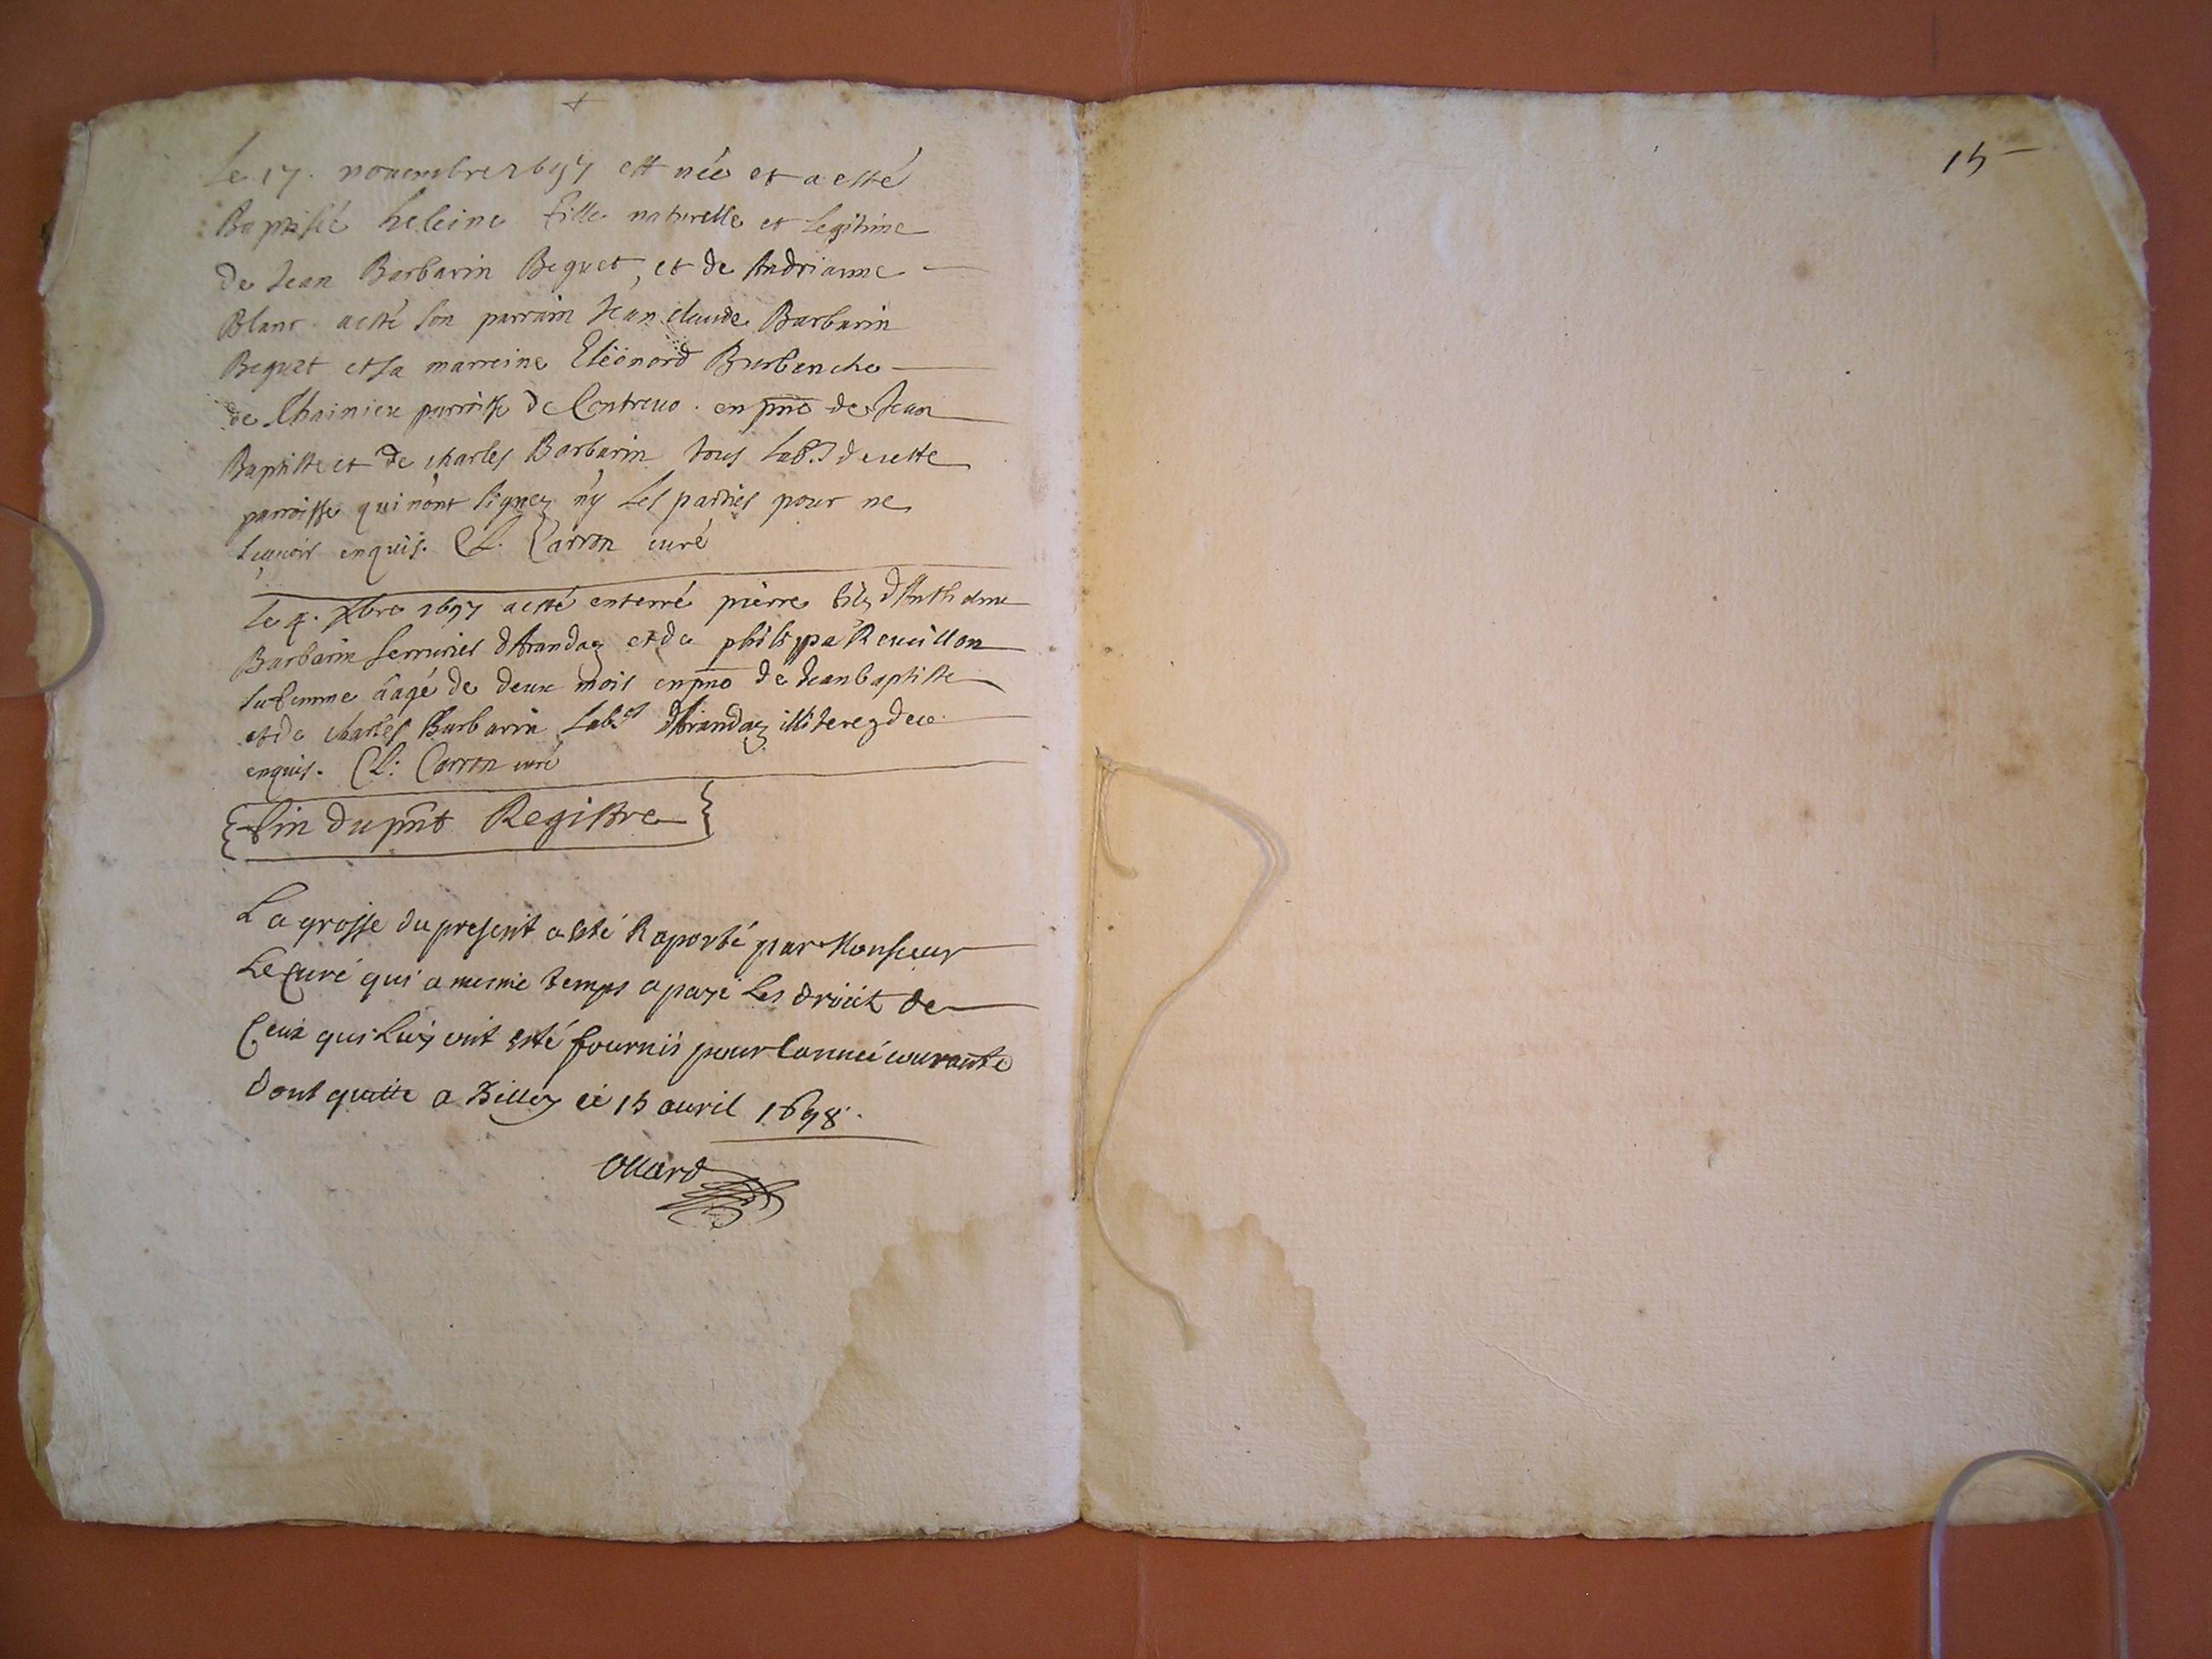 Le 17. novembre 1697 est née et a esté
Baptisée heleine fille naturelle et Legitime
de Jean Barbarin Beguet, et de Andrianne
Blanc. a esté son parrain Jean claude Barbarin
Beguet et sa marreine Eléonord Burbanche
de Chainieu parroisse de Contrevo. en pnce de Jean
Baptiste et de charles Barbarin tous Labrs de cette
parroisse qui n'ont signez n'y Les parties pour ne
sçavoir enquis. Cl. Carron curé
Le 4. xbre 1697 a esté enterré pierre filz d'Anthelme
Barbarin serrurier d'Arandaz et de philippa Reveillon
sa femme âagé de deux mois en pnce de Jean baptiste
et de charles Barbarin Labrs d'Arandaz illiterez de ce
enquis. Cl: Carron curé
fin du pnt Registre
La grosse du present a esté Raporté par Monsieur
Le Curé qui a mesme temps a payé Les droict de
Ceux qui Luy ont esté fournis pour L'année courante
dont quitte a Billey ce 15 avril 1698.
Ollard
15